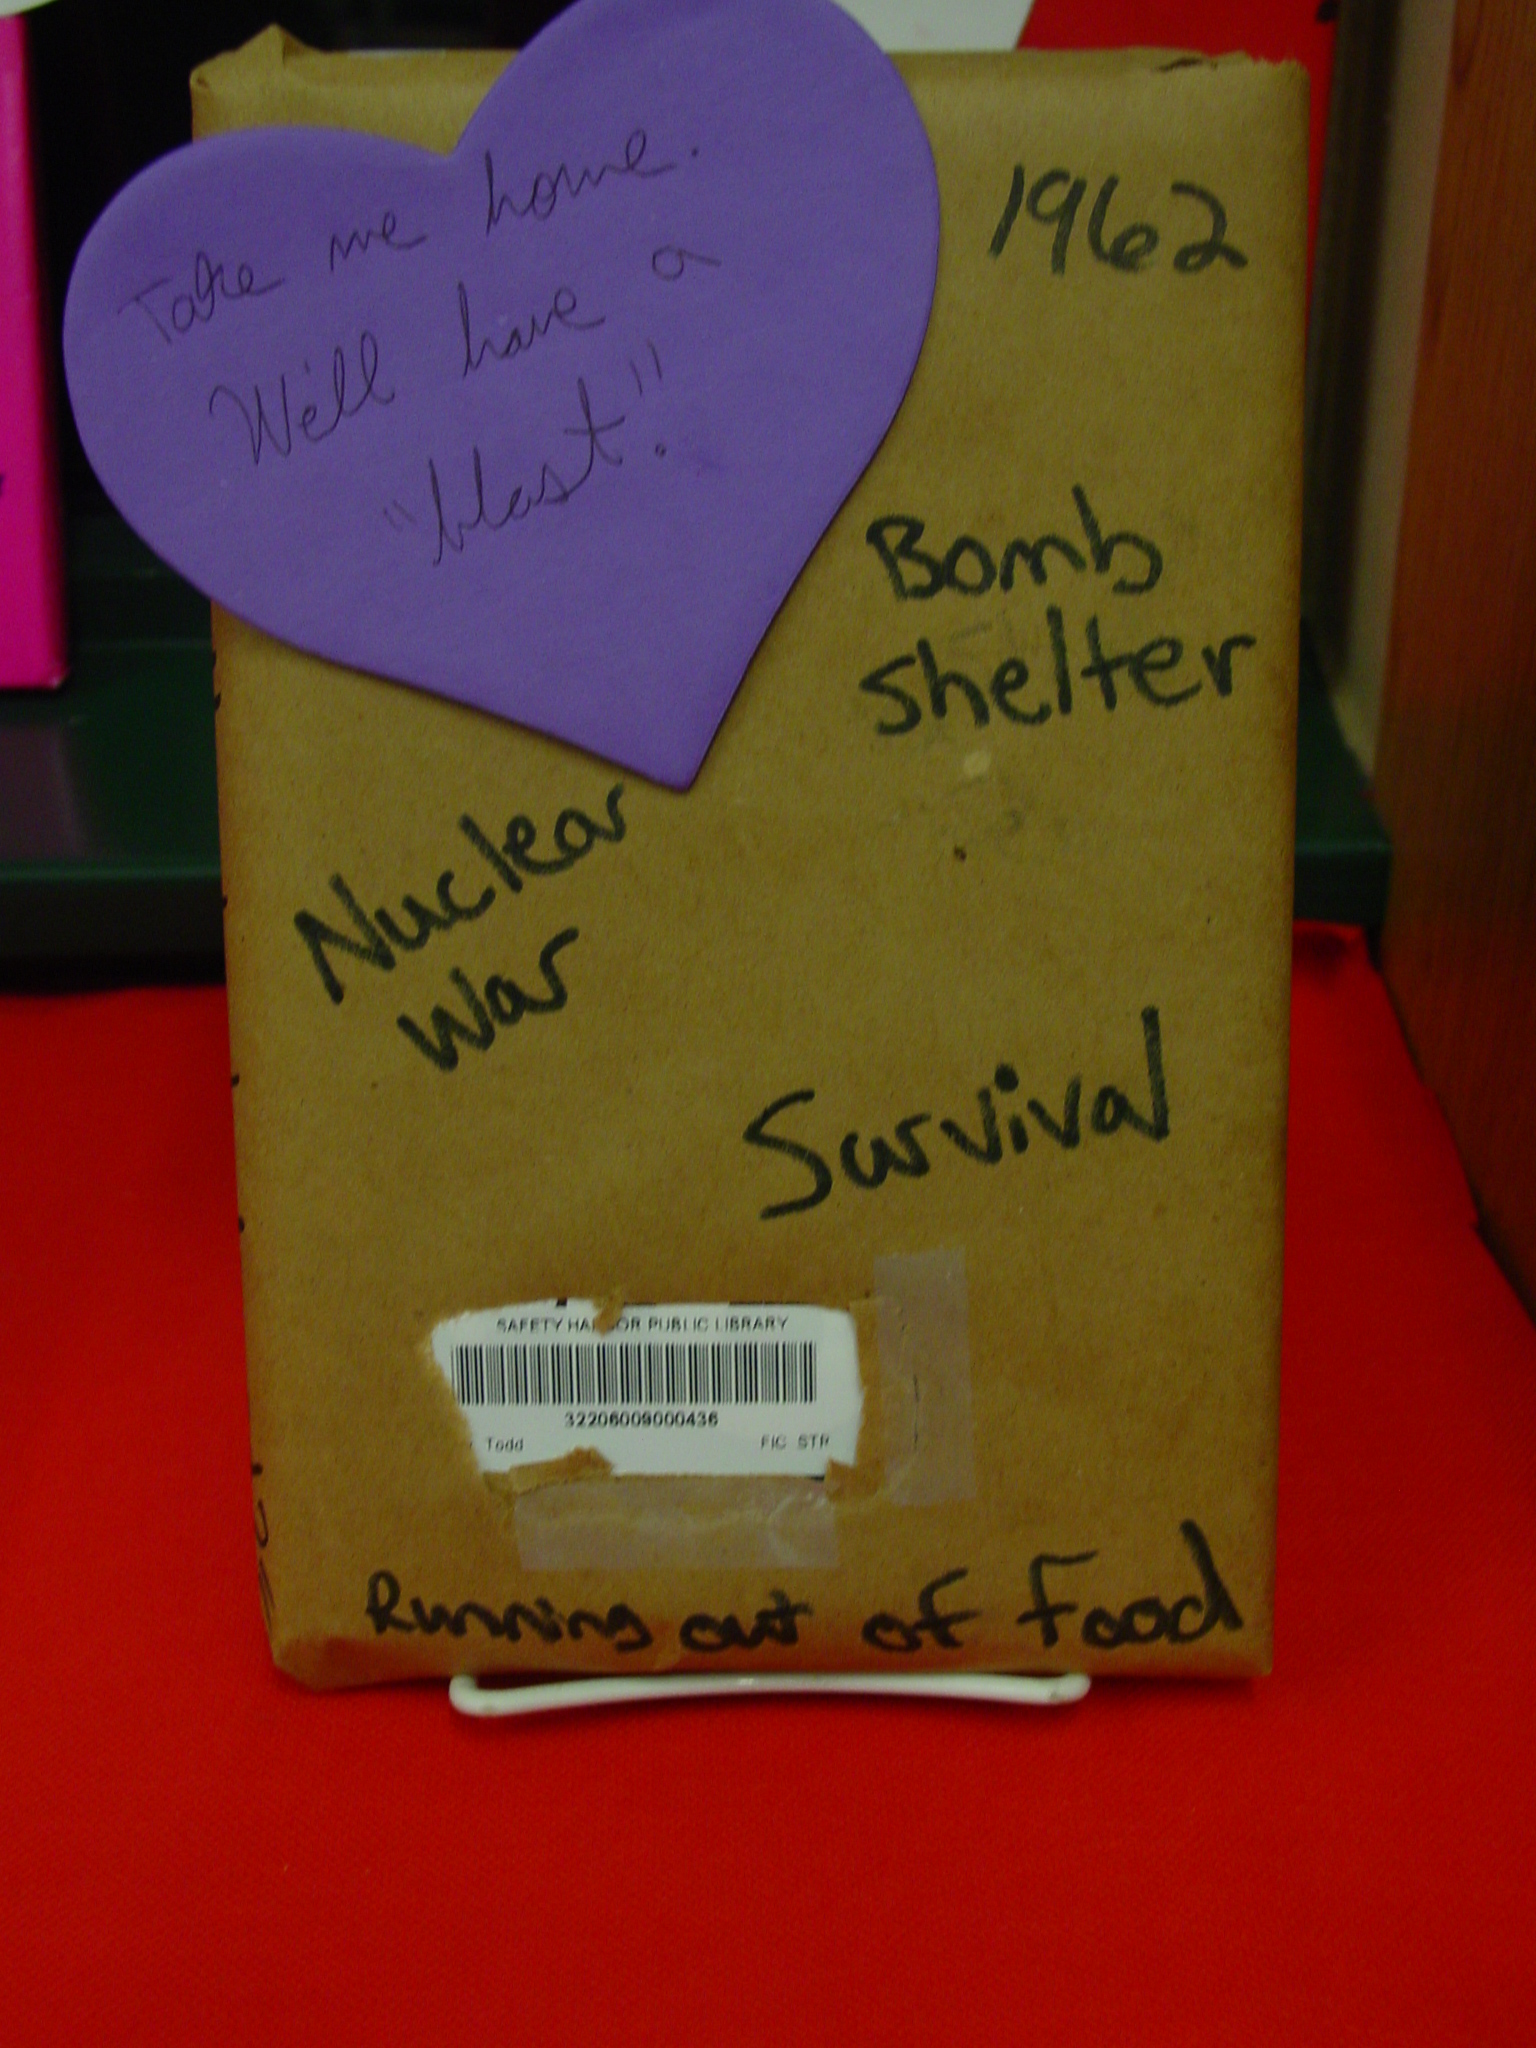 Take me home.
We'll have a
"blast".
1962
Bomb
shelter
Nuclear
War
Survival
SAFETY HARBOR PUBLIC LIBRARY
32206009000436
Todd
FIC STR
Running out of Food